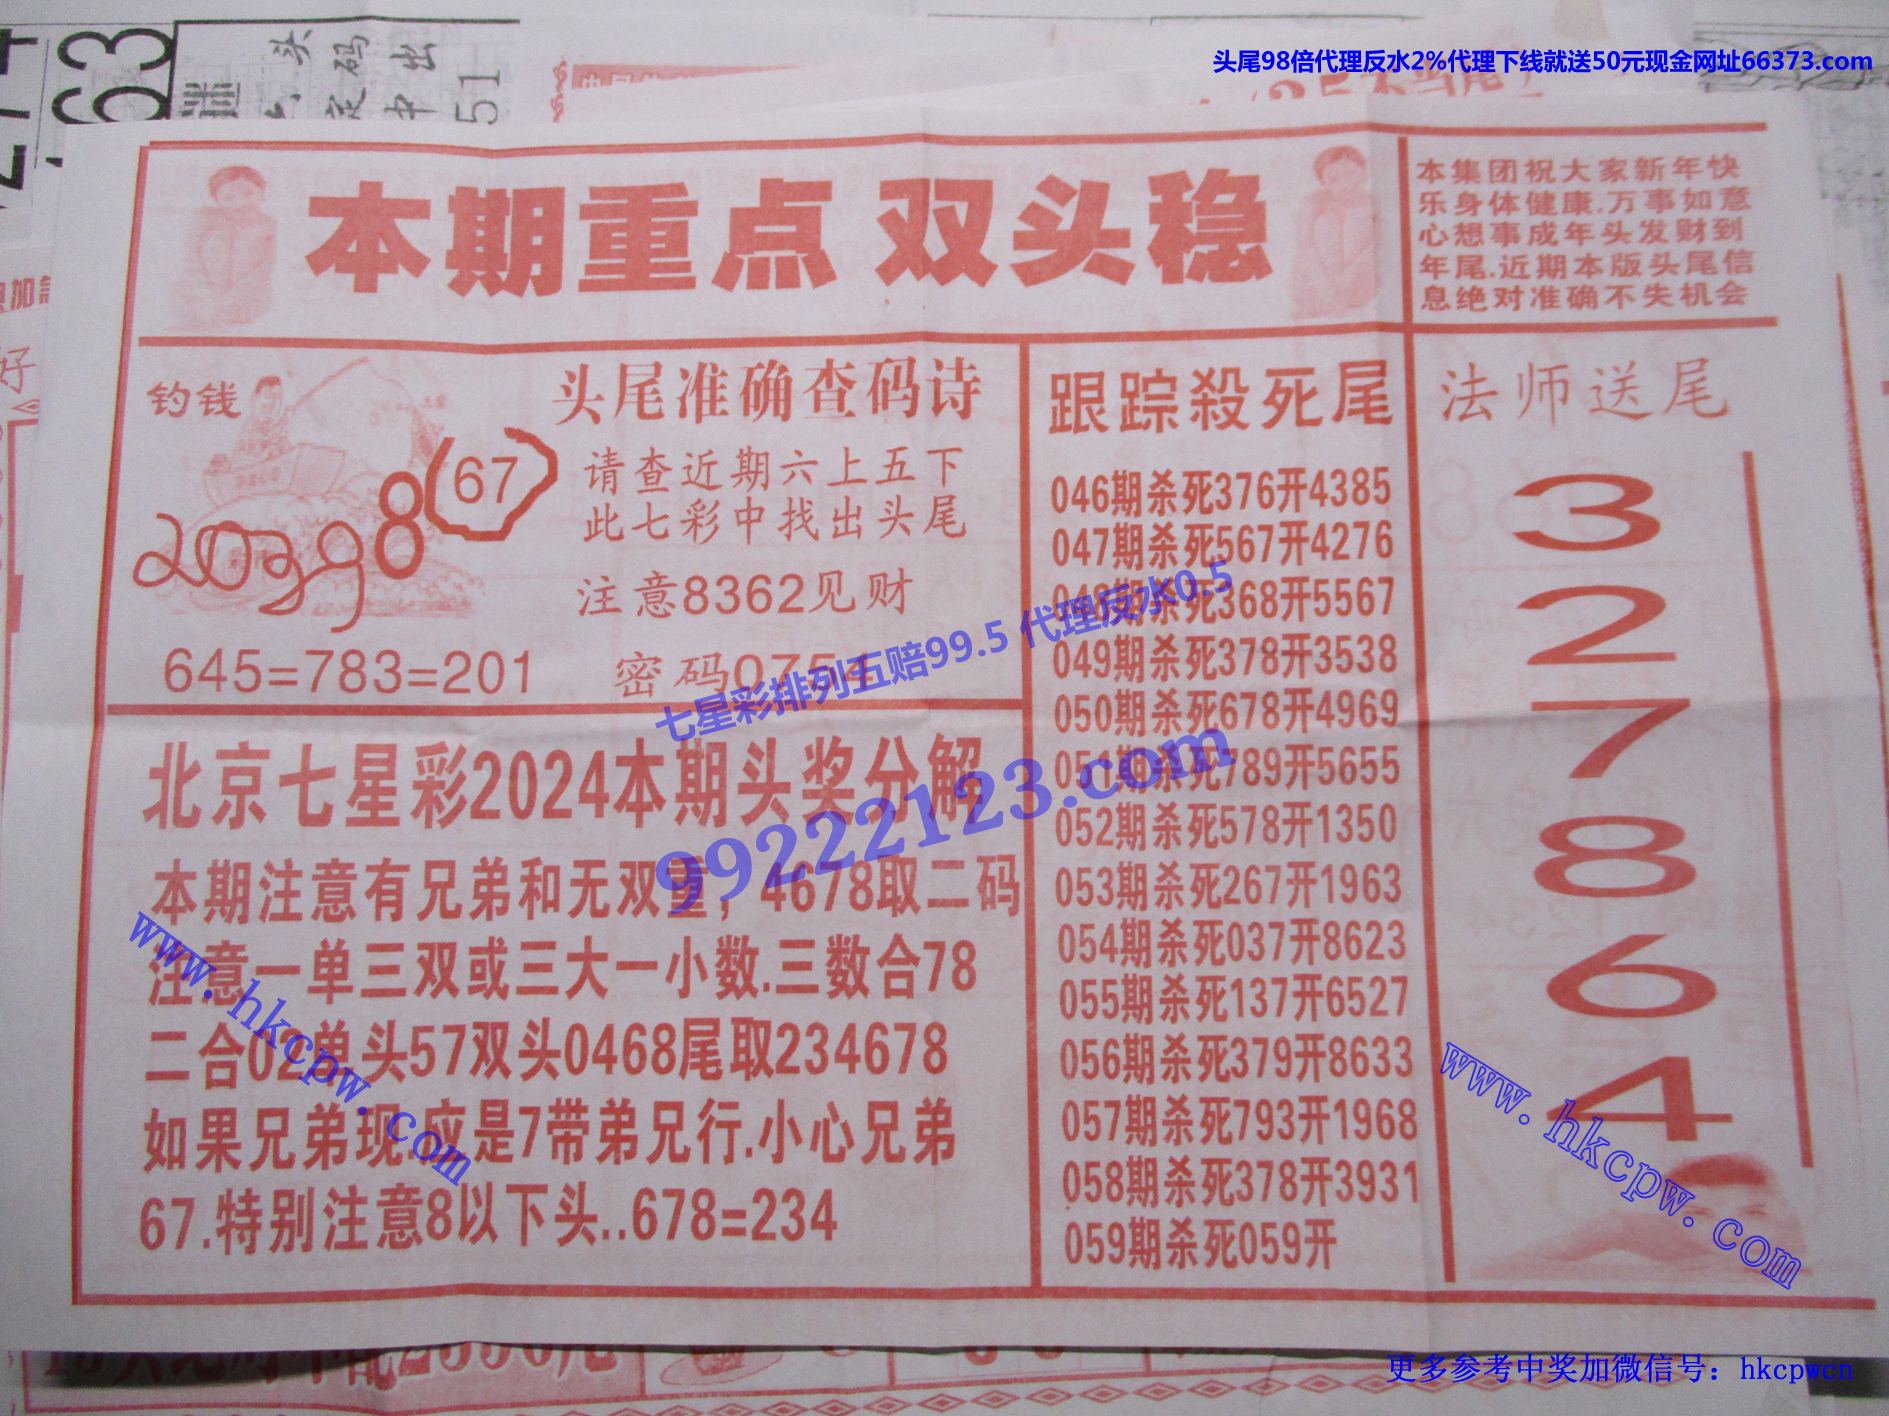 头尾98倍代理反水2%代理下线就送50元现金网址66373.com
本期重点 双头稳
本集团祝大家新年快
乐身体健康.万事如意
心想事成年头发财到
年尾.近期本版头尾信
息绝对准确不失机会
钓钱
67
头尾准确查码诗
请查近期六上五下
此七彩中找出头尾
注意8362见财
645=783=201
密码0754
七星彩排列五赔99.5 代理反水0.5
99222123.com
北京七星彩2024本期头奖分解
本期注意有兄弟和无双重，4678取二码
注意一单三双或三大一小数.三数合78
二合02单头57双头0468尾取234678
如果兄弟现.应是7带弟兄行.小心兄弟
67.特别注意8以下头..678=234
跟踪殺死尾
046期杀死376开4385
047期杀死567开4276
048期杀死368开5567
049期杀死378开3538
050期杀死678开4969
051期杀死789开5655
052期杀死578开1350
053期杀死267开1963
054期杀死037开8623
055期杀死137开6527
056期杀死379开8633
057期杀死793开1968
058期杀死378开3931
059期杀死059开
法师送尾
3
2
7
8
6
4
www.hkcpw.com
www.hkcpw.com
更多参考中奖加微信号：hkcpwcn